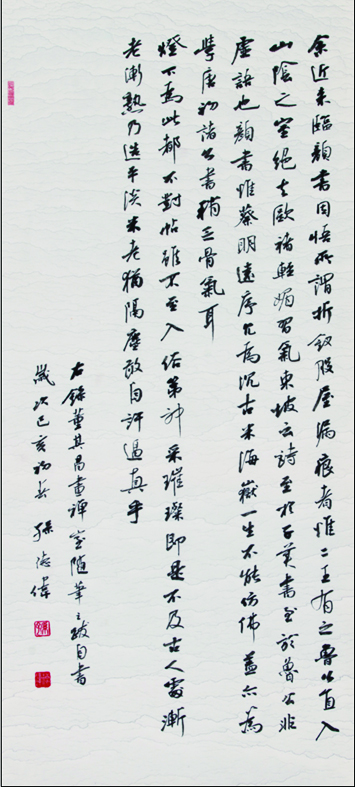 余近来臨顏書因悟所謂折釵股屋漏痕者惟二王有之魯公直入
山陰之室绝去歐褚輕媚習氣東坡云詩至於子美書至於魯公非
虛語也顏書惟蔡明遠序尤為沉古米海嶽一生不能仿佛蓋亦為
學唐初諸公書稍乏骨氣耳
燈下為此都不對帖雖不至入俗第神采璀璨即是不及古人處漸
老漸熟乃造平淡米老猶隔塵敢自許逼真乎
右録董其昌畫禪室隨筆之跋自書
歲次己亥初春 孫德偉